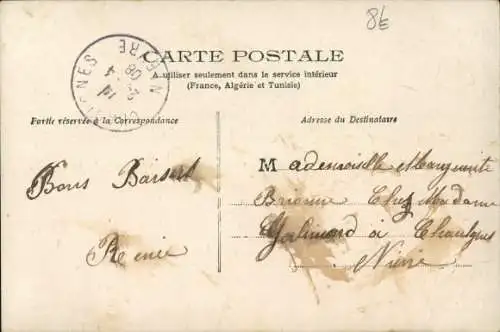 8E
CARTE POSTALE
A utiliser seulement dans le service intérieur
(France, Algérie et Tunisie)
Partie réservée à la Correspondance
Adresse du Destinataire
Bons Baisers
Renée
Mademoiselle Marguerite
Brionne Chez Madame
Galmard à Chaulgnes
Nièvre
NIEVRE